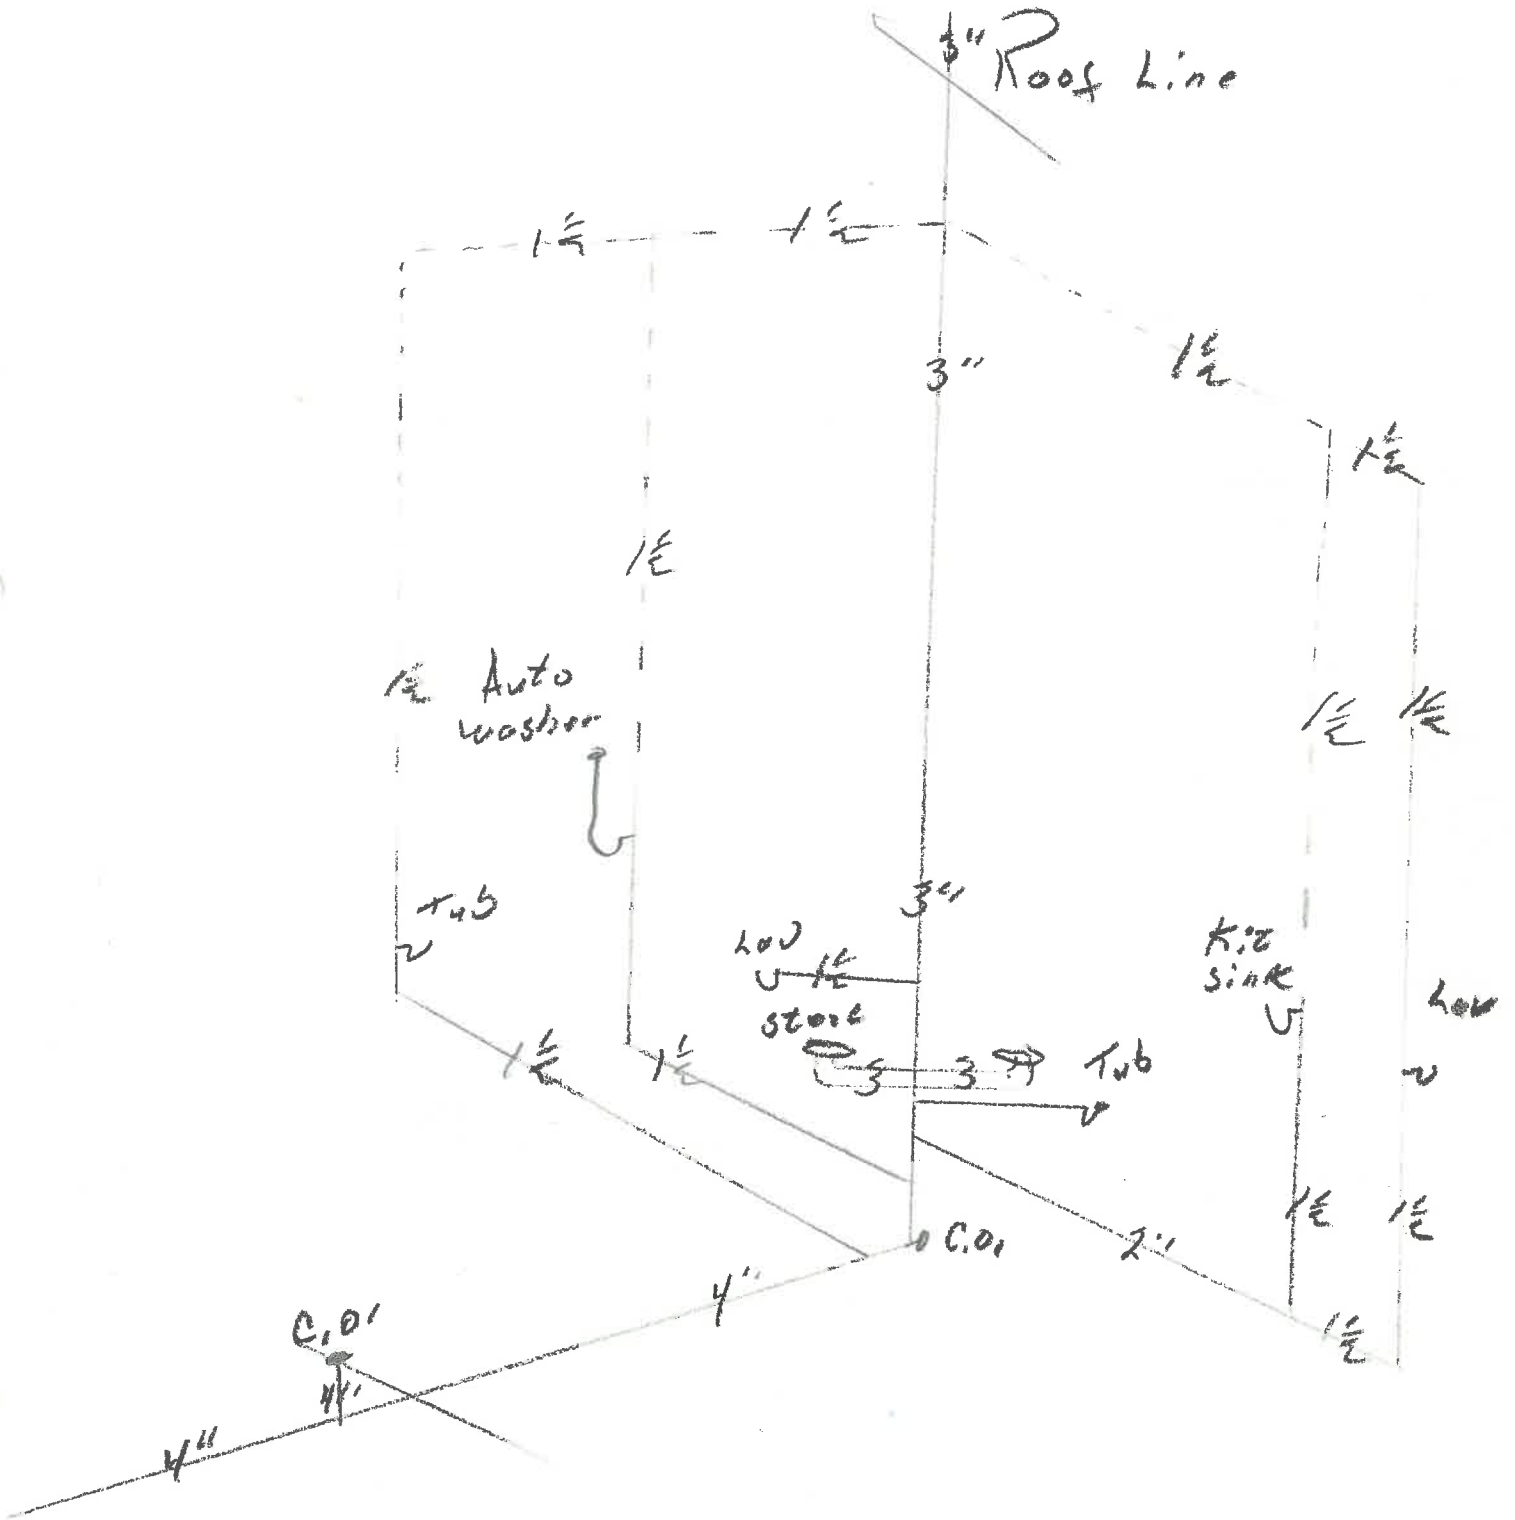 3" Roof Line
1 1/2
1 1/2
3"
1 1/2
1 1/2
1 1/2
1 1/2
Auto
washer
1 1/2
1 1/2
Tub
3"
Lav
1 1/2
Kit
sink
Lav
3
3
Tub
1 1/2
1 1/2
1 1/2
1 1/2
C.O.
2"
4"
1 1/2
C.O.
4"
4"